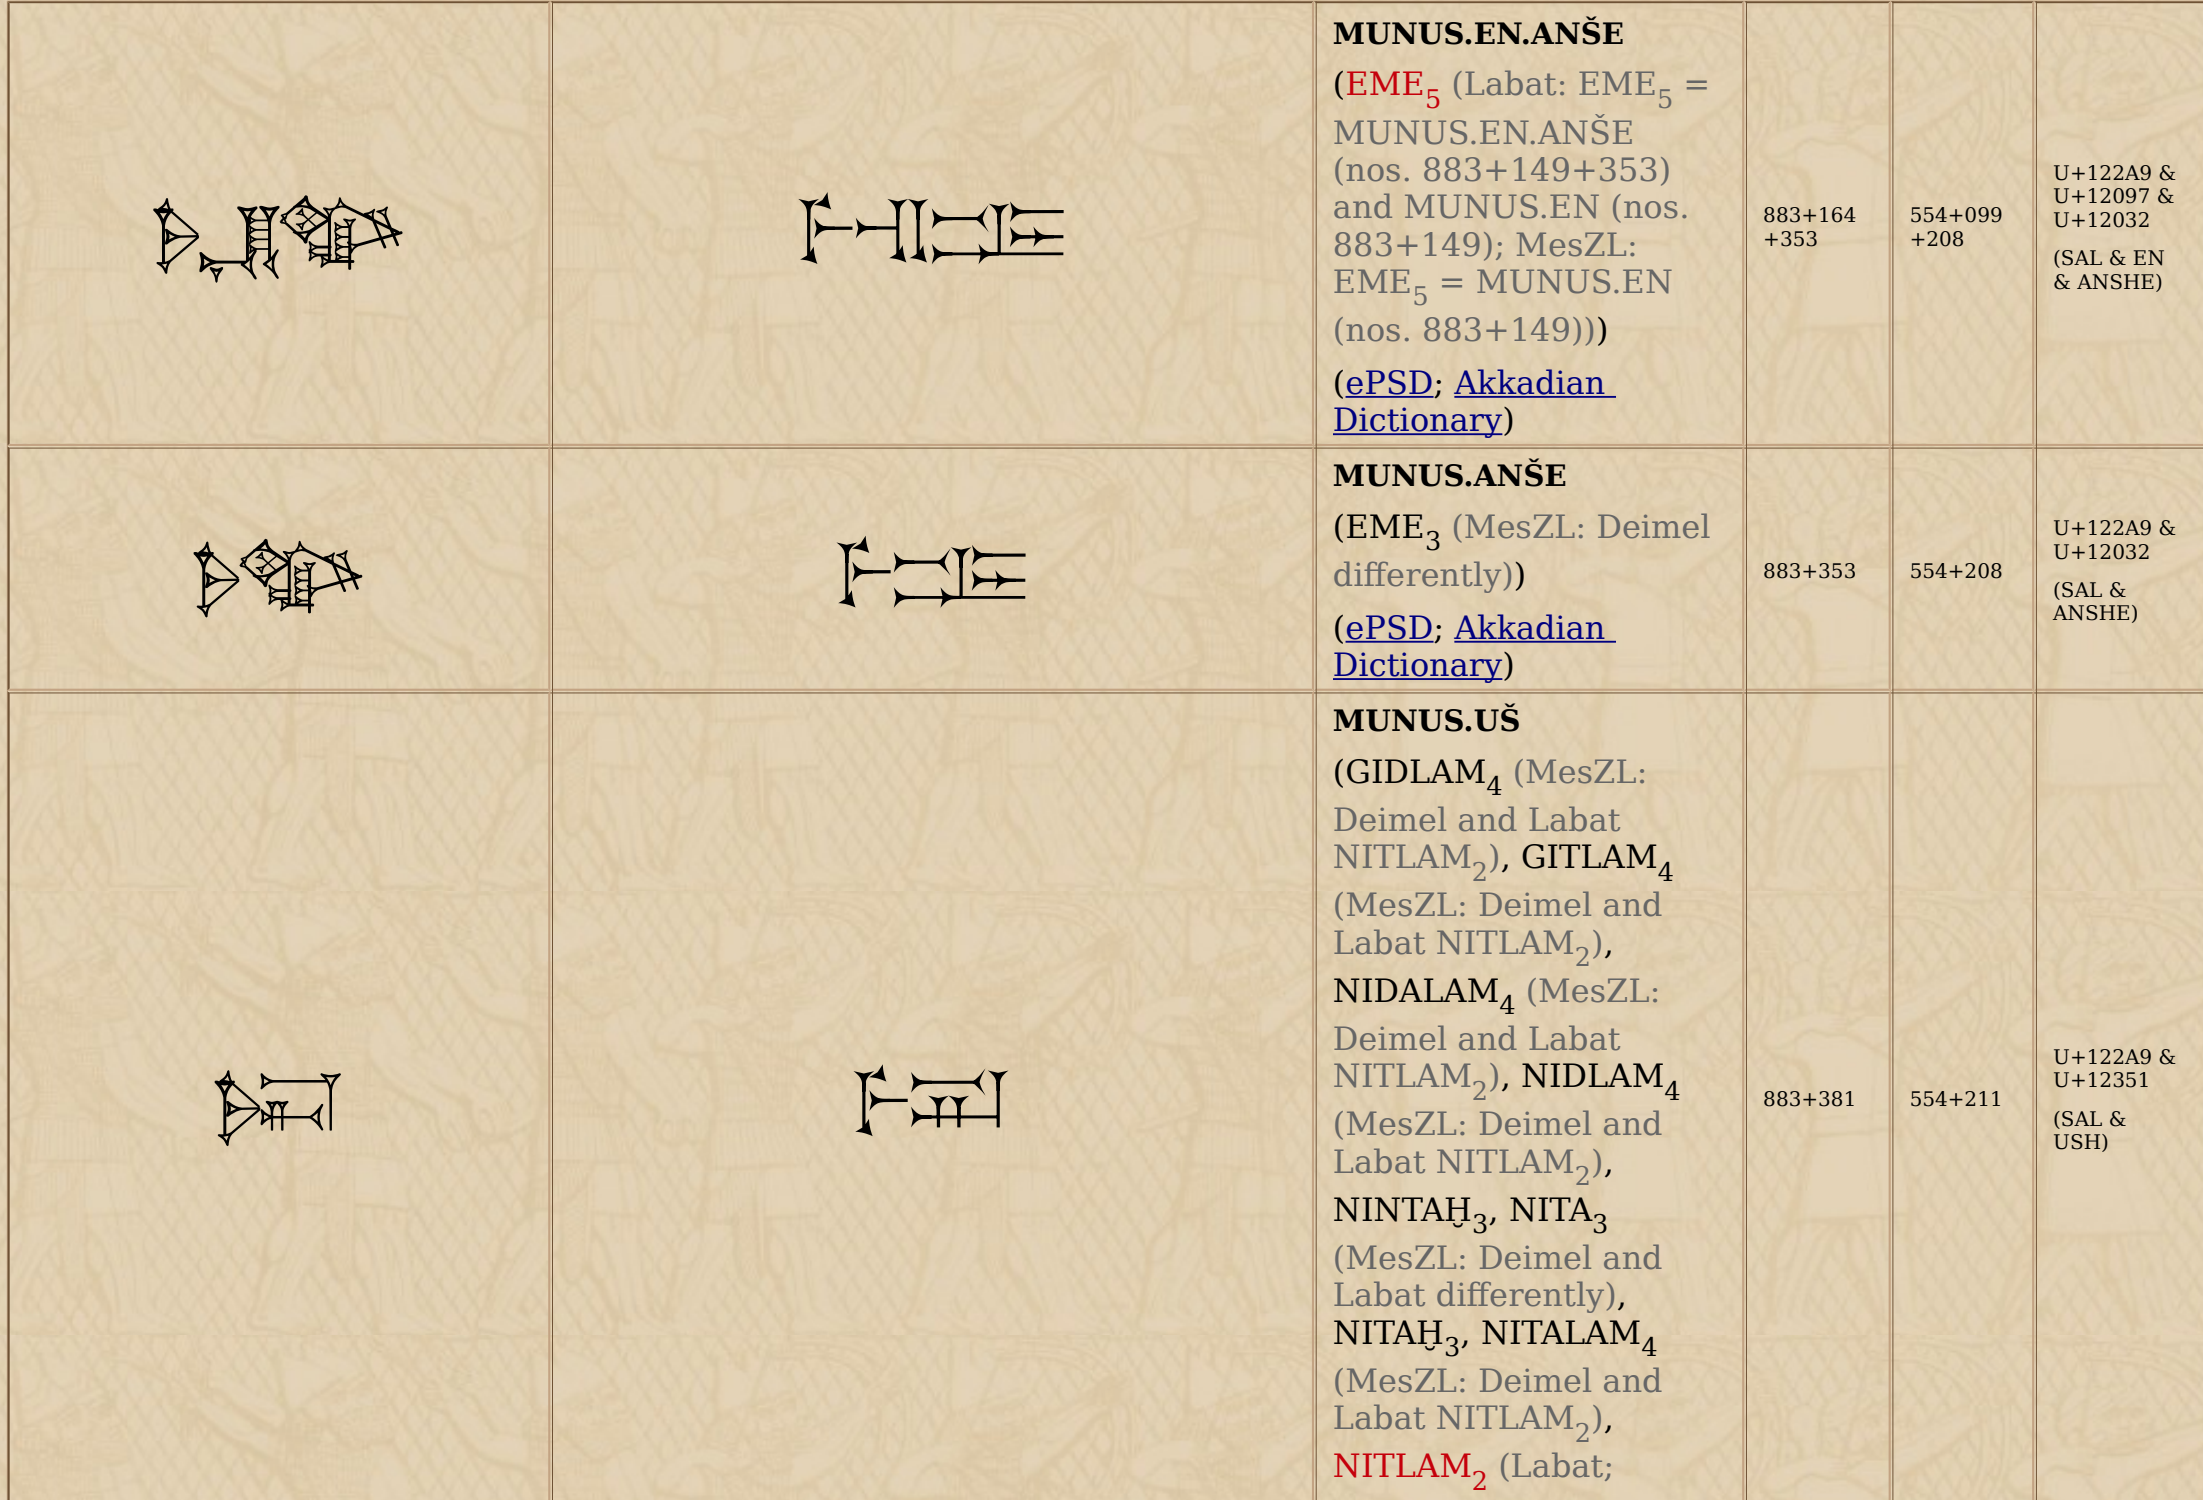 𒊩𒂗𒀲
𒊩𒂗𒀲
MUNUS.EN.ANŠE
(EME₅ (Labat: EME₅ =
MUNUS.EN.ANŠE
(nos. 883+149+353)
and MUNUS.EN (nos.
883+149); MesZL:
EME₅ = MUNUS.EN
(nos. 883+149)))
(ePSD; Akkadian
Dictionary)
883+164
+353
554+099
+208
U+122A9 &
U+12097 &
U+12032
(SAL & EN
& ANSHE)
𒊩𒀲
𒊩𒀲
MUNUS.ANŠE
(EME₃ (MesZL: Deimel
differently))
(ePSD; Akkadian
Dictionary)
883+353
554+208
U+122A9 &
U+12032
(SAL &
ANSHE)
𒊩𒍑
𒊩𒍑
MUNUS.UŠ
(GIDLAM₄ (MesZL:
Deimel and Labat
NITLAM₂), GITLAM₄
(MesZL: Deimel and
Labat NITLAM₂),
NIDALAM₄ (MesZL:
Deimel and Labat
NITLAM₂), NIDLAM₄
(MesZL: Deimel and
Labat NITLAM₂),
NINTAḪ₃, NITA₃
(MesZL: Deimel and
Labat differently),
NITAḪ₃, NITALAM₄
(MesZL: Deimel and
Labat NITLAM₂),
NITLAM₂ (Labat;
883+381
554+211
U+122A9 &
U+12351
(SAL &
USH)